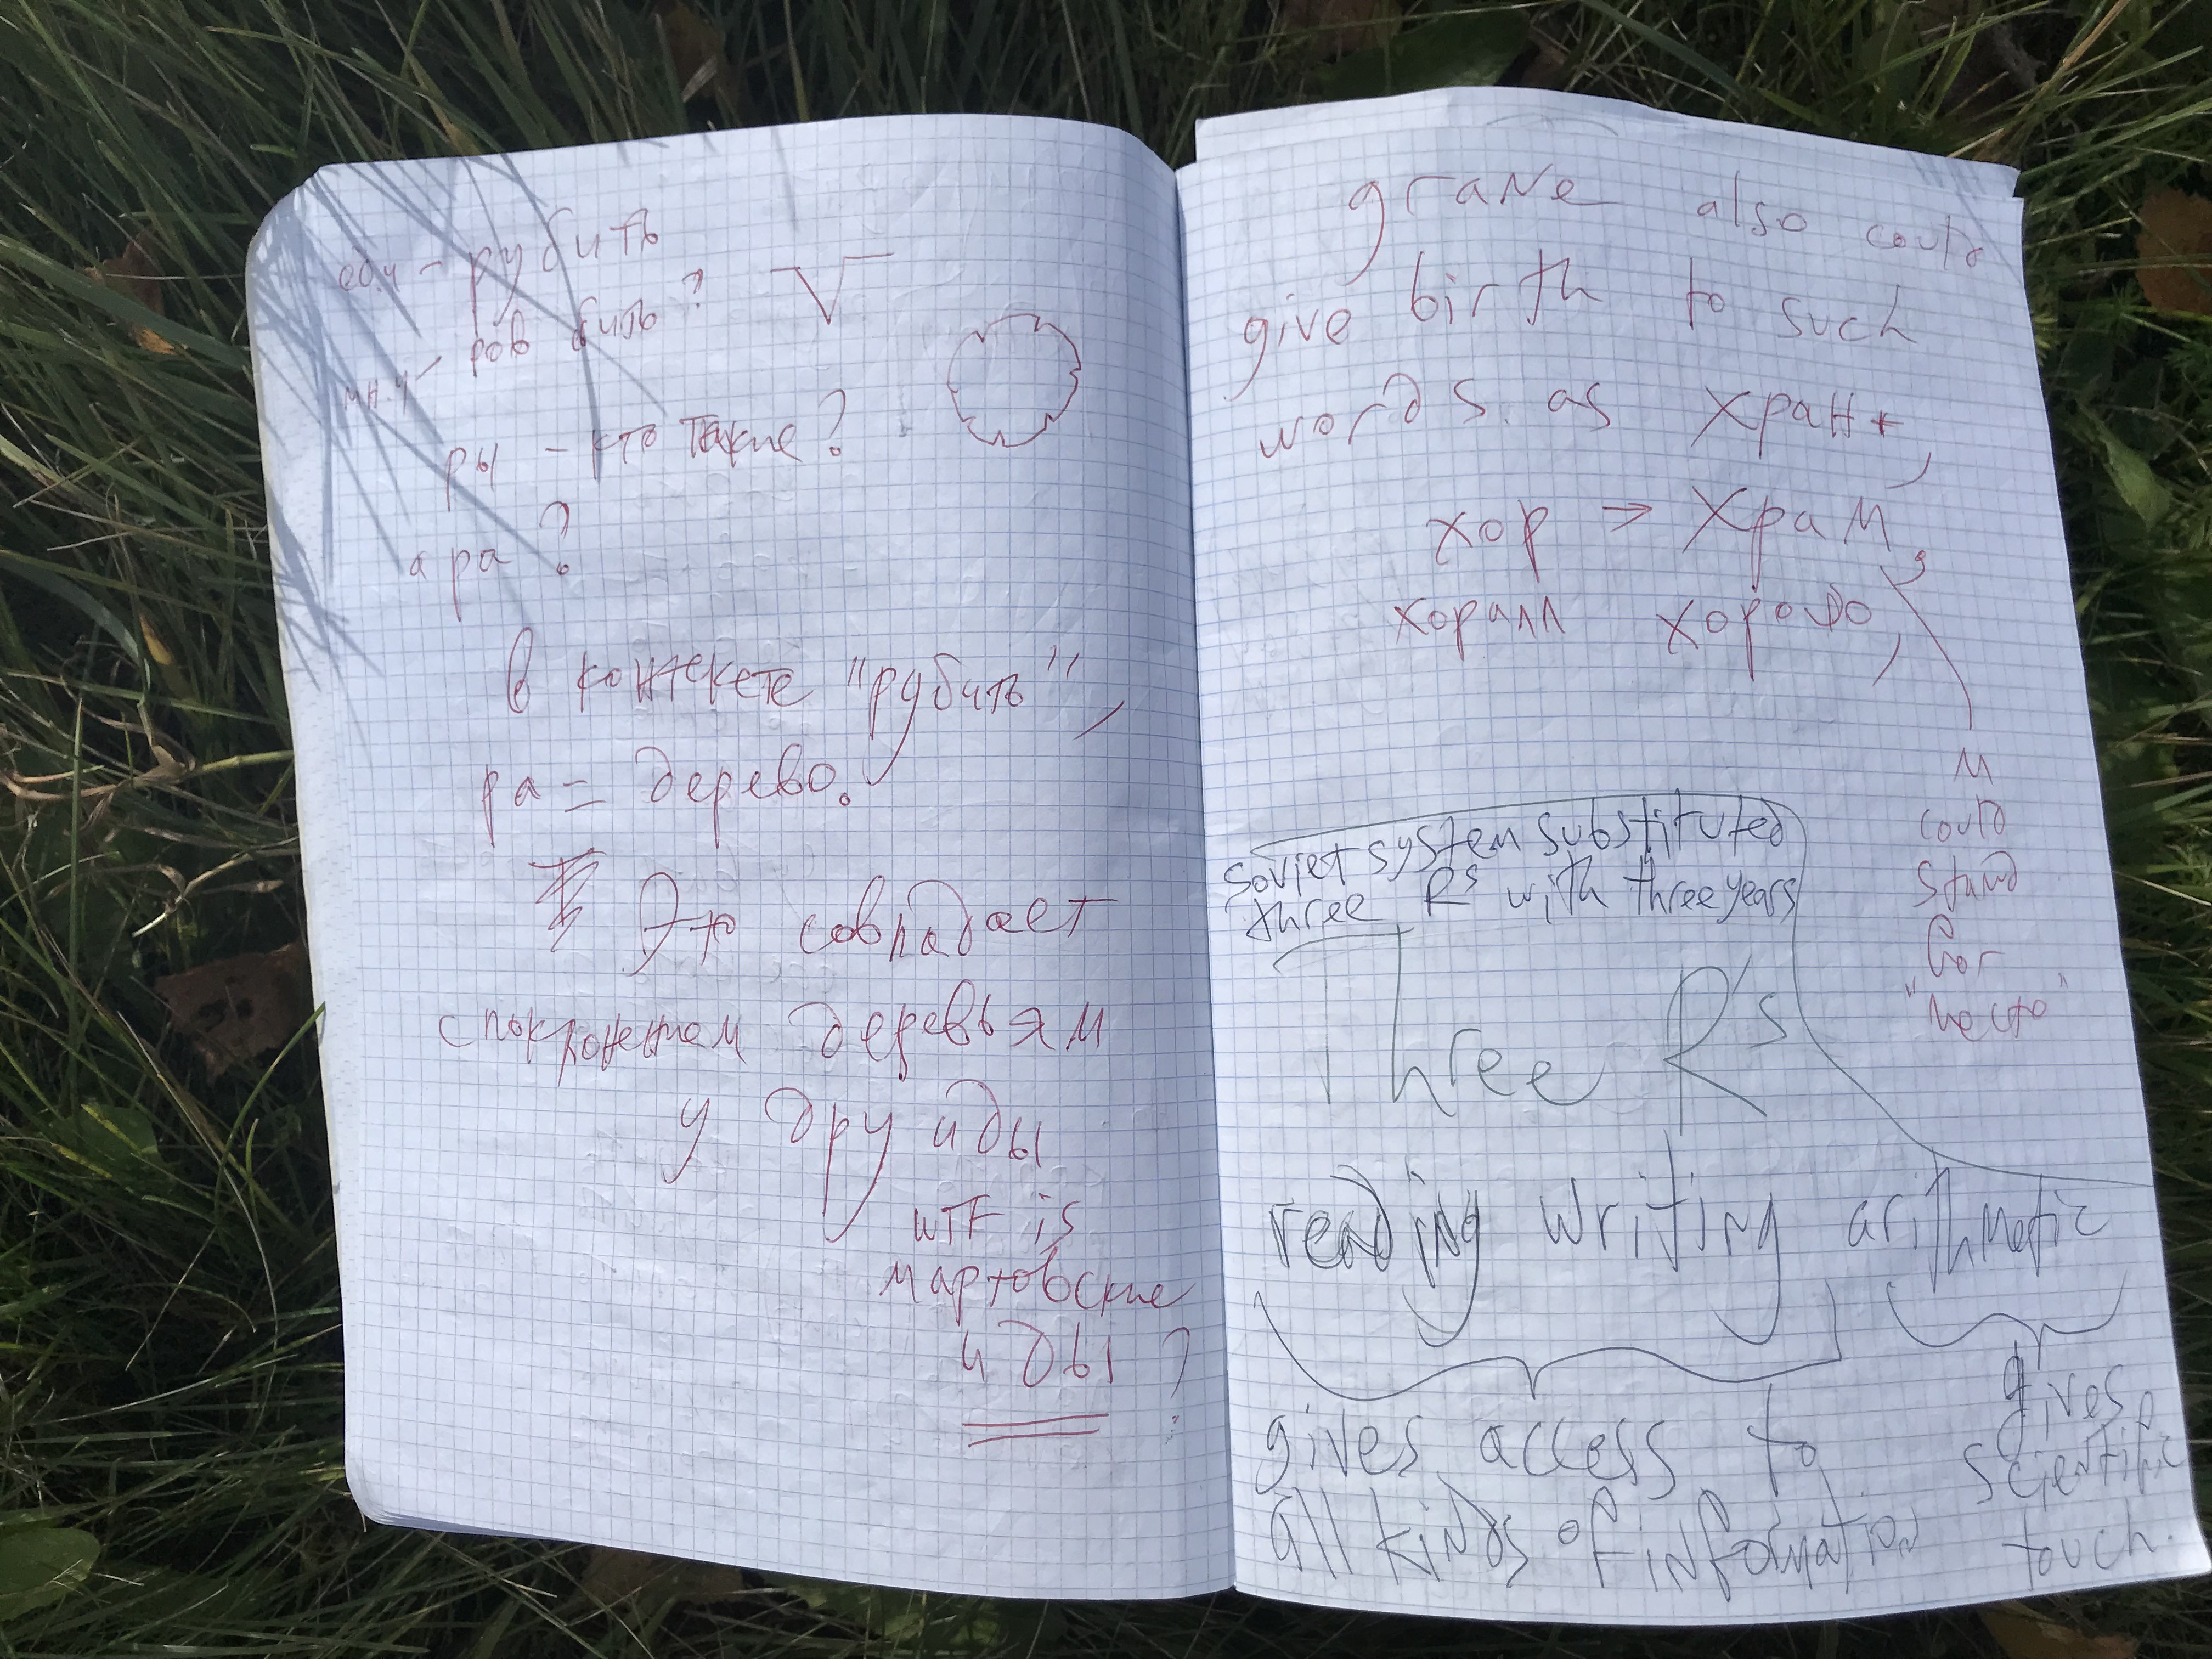 ед.ч - рубить
мн.ч - ров бить?
ры - кто такие?
а ра?
В контексте "рубить",
ра = дерево.
Это совпадает
с поклонением деревьям
у друидов
WTF is
мартовские
иды?
grave also could
give birth to such
words as хран +
хор → храм,
хорал хорово
м
could
stand
for
"место"
Soviet system substituted
three Rs with three years
Three R's
reading writing arithmetic
gives access to
all kinds of information
gives
scientific
touch.